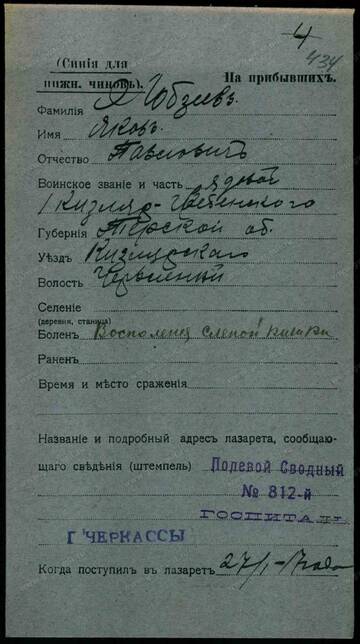 4
434
(Синія для
нижн. чиновъ).
На прибывшихъ.
Фамилія
Имя Яковъ.
Отчество Павловичъ
Воинское званіе и часть рядовой
1 Кизляро-Гребенского
Губернія Терской об.
Уѣздъ Кизлярскаго
Волость
Селеніе
(деревня, станица)
Боленъ Воспаленія слепой кишки
Раненъ
Время и мѣсто сраженія
Названіе и подробный адресъ лазарета, сообщаю-
щаго свѣдѣнія (штемпель) Полевой Сводный
№ 812-й
ГОСПИТАЛ
Г ЧЕРКАССЫ
Когда поступилъ въ лазаретъ 27/I-17 года